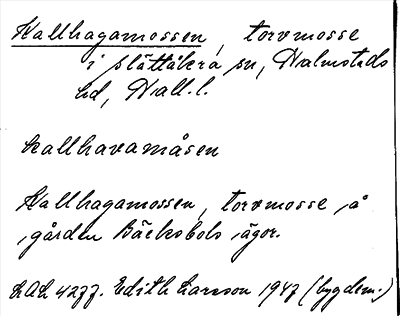 Kallhagamossen, torvmosse
i Slättåkra sn, Halmstads
hd, Hall. l.
kallhavamåsen
Kallhagamossen, torvmosse å
gården Bäcksbols ägor.
LAL 4277. Edith Larsson 1947 (bygdem.)